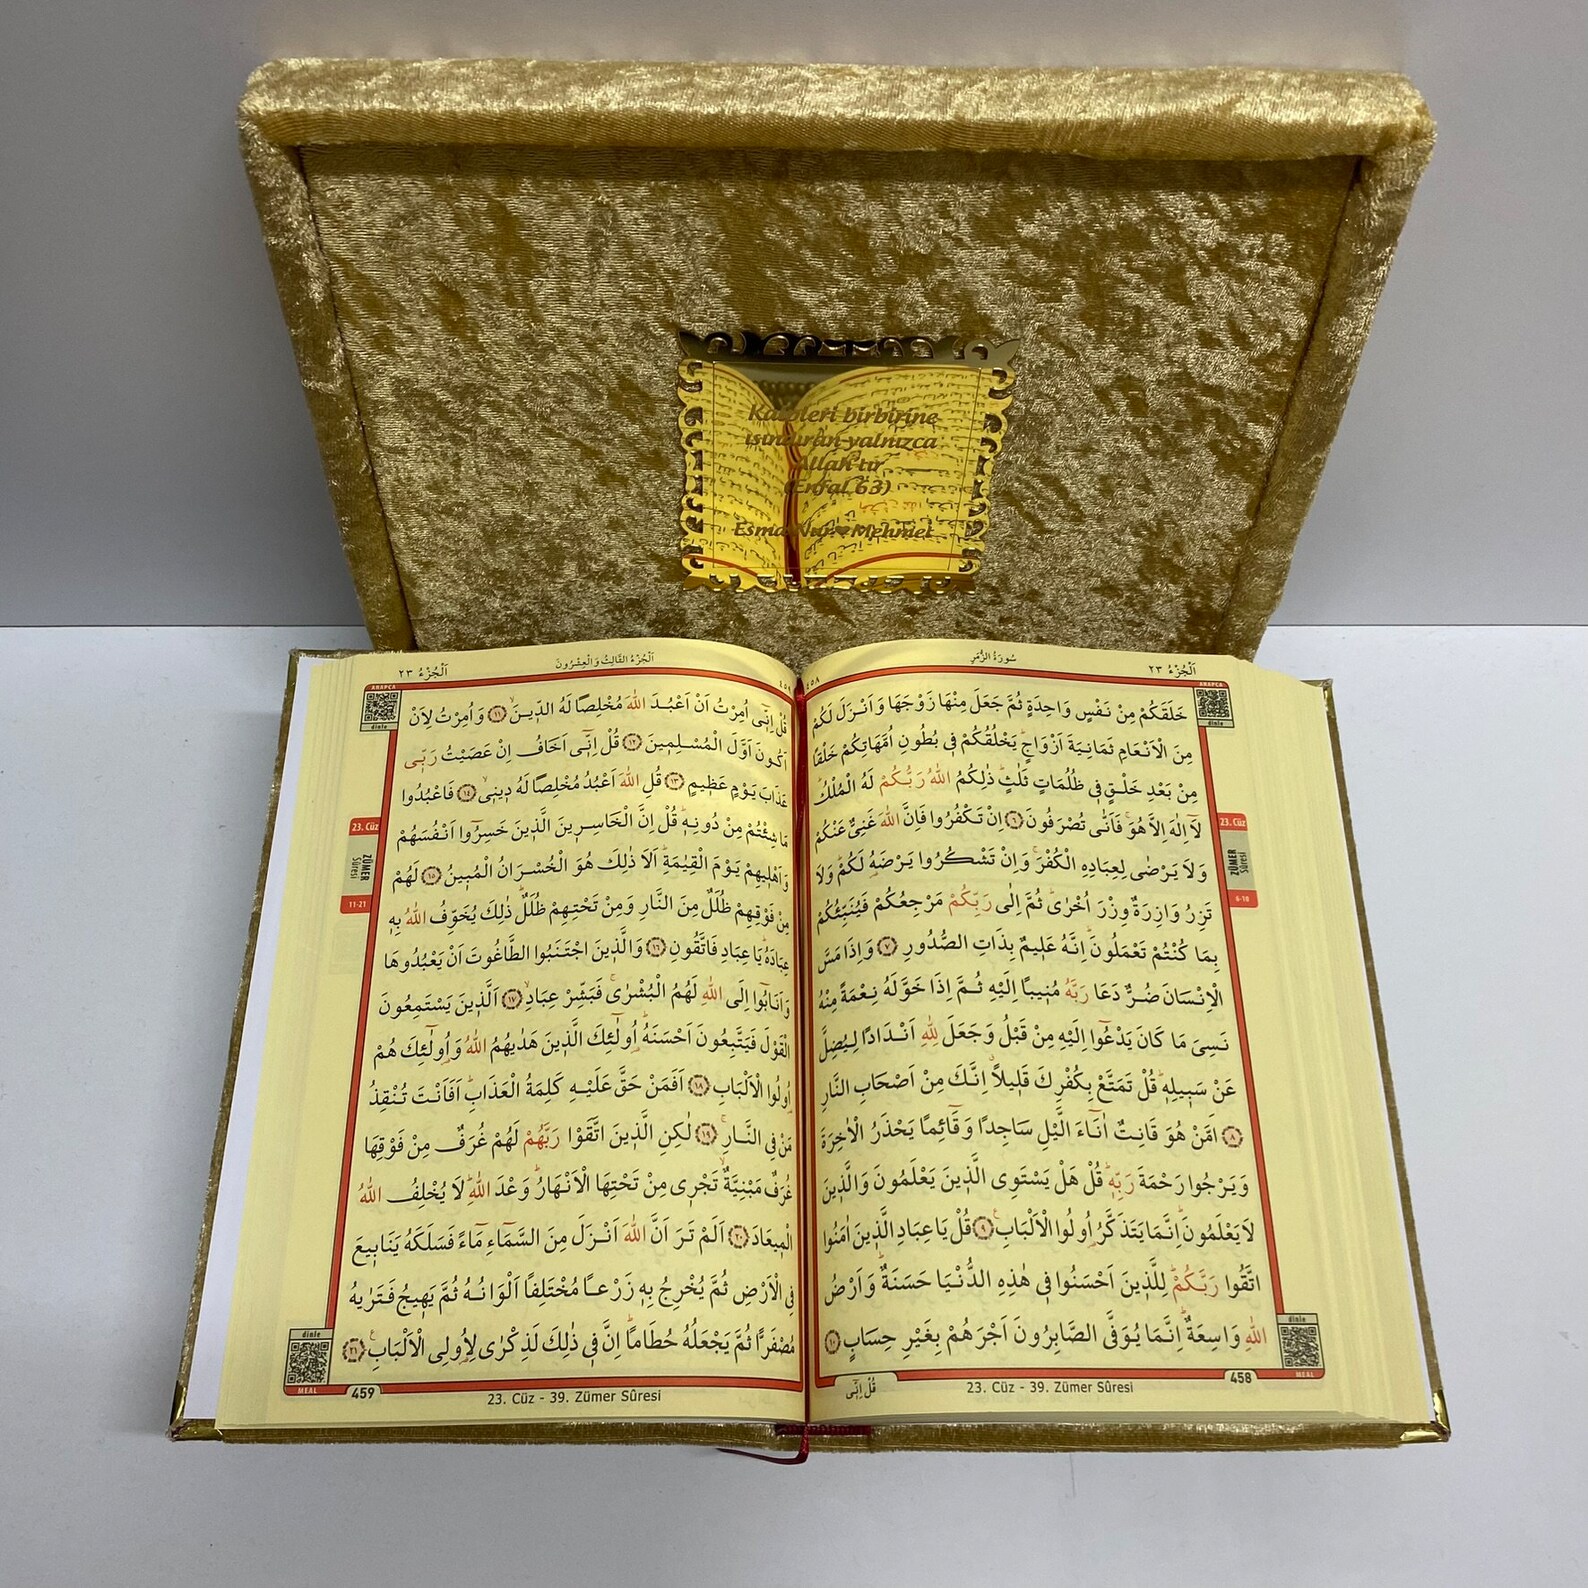 Kalpleri birbirine
ısındıran yalnızca
Allah'tır
(Enfal 63)
Esma Nur ♥ Mehmet
اَلْجُزْءُ ٢٣
سُورَةُ الزُّمَرِ
٤٥٨
ARAPÇA
dinle
خَلَقَكُمْ مِنْ نَفْسٍ وَاحِدَةٍ ثُمَّ جَعَلَ مِنْهَا زَوْجَهَا وَاَنْزَلَ لَكُمْ
مِنَ الْاَنْعَامِ ثَمَانِيَةَ اَزْوَاجٍۜ يَخْلُقُكُمْ ف۪ي بُطُونِ اُمَّهَاتِكُمْ خَلْقًا
مِنْ بَعْدِ خَلْقٍ ف۪ي ظُلُمَاتٍ ثَلٰثٍۜ ذٰلِكُمُ اللّٰهُ رَبُّكُمْ لَهُ الْمُلْكُۜ
لَٓا اِلٰهَ اِلَّا هُوَۚ فَاَنّٰى تُصْرَفُونَ ﴿٦﴾ اِنْ تَكْفُرُوا فَاِنَّ اللّٰهَ غَنِيٌّ عَنْكُمْ
وَلَا يَرْضٰى لِعِبَادِهِ الْكُفْرَۚ وَاِنْ تَشْكُرُوا يَرْضَهُ لَكُمْۜ وَلَا
تَزِرُ وَازِرَةٌ وِزْرَ اُخْرٰىۜ ثُمَّ اِلٰى رَبِّكُمْ مَرْجِعُكُمْ فَيُنَبِّئُكُمْ
بِمَا كُنْتُمْ تَعْمَلُونَۜ اِنَّهُ عَل۪يمٌ بِذَاتِ الصُّدُورِ ﴿٧﴾ وَاِذَا مَسَّ
الْاِنْسَانَ ضُرٌّ دَعَا رَبَّهُ مُن۪يبًا اِلَيْهِ ثُمَّ اِذَا خَوَّلَهُ نِعْمَةً مِنْهُ
نَسِيَ مَا كَانَ يَدْعُٓوا اِلَيْهِ مِنْ قَبْلُ وَجَعَلَ لِلّٰهِ اَنْدَادًا لِيُضِلَّ
عَنْ سَب۪يلِه۪ۜ قُلْ تَمَتَّعْ بِكُفْرِكَ قَل۪يلًاۗ اِنَّكَ مِنْ اَصْحَابِ النَّارِ
﴿٨﴾ اَمَّنْ هُوَ قَانِتٌ اٰنَٓاءَ الَّيْلِ سَاجِدًا وَقَٓائِمًا يَحْذَرُ الْاٰخِرَةَ
وَيَرْجُوا رَحْمَةَ رَبِّه۪ۜ قُلْ هَلْ يَسْتَوِي الَّذ۪ينَ يَعْلَمُونَ وَالَّذ۪ينَ
لَا يَعْلَمُونَۜ اِنَّمَا يَتَذَكَّرُ اُو۬لُوا الْاَلْبَابِ۟ ﴿٩﴾ قُلْ يَا عِبَادِ الَّذ۪ينَ اٰمَنُوا
اتَّقُوا رَبَّكُمْۜ لِلَّذ۪ينَ اَحْسَنُوا ف۪ي هٰذِهِ الدُّنْيَا حَسَنَةٌۜ وَاَرْضُ
اللّٰهِ وَاسِعَةٌۜ اِنَّمَا يُوَفَّى الصَّابِرُونَ اَجْرَهُمْ بِغَيْرِ حِسَابٍ ﴿١٠﴾
23. Cüz
ZÜMER
Sûresi
6-10
dinle
MEAL
458
23. Cüz - 39. Zümer Sûresi
قُلْ اِنّ۪ٓي
اَلْجُزْءُ ٢٣
اَلْجُزْءُ الثَّالِثُ وَالْعِشْرُونَ
٤٥٩
ARAPÇA
dinle
قُلْ اِنّ۪ٓي اُمِرْتُ اَنْ اَعْبُدَ اللّٰهَ مُخْلِصًا لَهُ الدّ۪ينَۙ ﴿١١﴾ وَاُمِرْتُ لِاَنْ
اَكُونَ اَوَّلَ الْمُسْلِم۪ينَ ﴿١٢﴾ قُلْ اِنّ۪ٓي اَخَافُ اِنْ عَصَيْتُ رَبّ۪ي
عَذَابَ يَوْمٍ عَظ۪يمٍ ﴿١٣﴾ قُلِ اللّٰهَ اَعْبُدُ مُخْلِصًا لَهُ د۪ين۪يۙ ﴿١٤﴾ فَاعْبُدُوا
مَا شِئْتُمْ مِنْ دُونِه۪ۜ قُلْ اِنَّ الْخَاسِر۪ينَ الَّذ۪ينَ خَسِرُٓوا اَنْفُسَهُمْ
وَاَهْل۪يهِمْ يَوْمَ الْقِيٰمَةِۜ اَلَا ذٰلِكَ هُوَ الْخُسْرَانُ الْمُب۪ينُ ﴿١٥﴾ لَهُمْ
مِنْ فَوْقِهِمْ ظُلَلٌ مِنَ النَّارِ وَمِنْ تَحْتِهِمْ ظُلَلٌۜ ذٰلِكَ يُخَوِّفُ اللّٰهُ بِه۪
عِبَادَهُۜ يَا عِبَادِ فَاتَّقُونِ ﴿١٦﴾ وَالَّذ۪ينَ اجْتَنَبُوا الطَّاغُوتَ اَنْ يَعْبُدُوهَا
وَاَنَابُٓوا اِلَى اللّٰهِ لَهُمُ الْبُشْرٰىۚ فَبَشِّرْ عِبَادِۙ ﴿١٧﴾ اَلَّذ۪ينَ يَسْتَمِعُونَ
الْقَوْلَ فَيَتَّبِعُونَ اَحْسَنَهُۜ اُو۬لٰٓئِكَ الَّذ۪ينَ هَدٰيهُمُ اللّٰهُ وَاُو۬لٰٓئِكَ هُمْ
اُو۬لُوا الْاَلْبَابِ ﴿١٨﴾ اَفَمَنْ حَقَّ عَلَيْهِ كَلِمَةُ الْعَذَابِۜ اَفَاَنْتَ تُنْقِذُ
مَنْ فِي النَّارِۚ ﴿١٩﴾ لٰكِنِ الَّذ۪ينَ اتَّقَوْا رَبَّهُمْ لَهُمْ غُرَفٌ مِنْ فَوْقِهَا
غُرَفٌ مَبْنِيَّةٌۙ تَجْر۪ي مِنْ تَحْتِهَا الْاَنْهَارُۜ وَعْدَ اللّٰهِۜ لَا يُخْلِفُ اللّٰهُ
الْم۪يعَادَ ﴿٢٠﴾ اَلَمْ تَرَ اَنَّ اللّٰهَ اَنْزَلَ مِنَ السَّمَٓاءِ مَٓاءً فَسَلَكَهُ يَنَاب۪يعَ
فِي الْاَرْضِ ثُمَّ يُخْرِجُ بِه۪ زَرْعًا مُخْتَلِفًا اَلْوَانُهُ ثُمَّ يَه۪يجُ فَتَرٰيهُ
مُصْفَرًّا ثُمَّ يَجْعَلُهُ حُطَامًاۜ اِنَّ ف۪ي ذٰلِكَ لَذِكْرٰى لِاُو۬لِي الْاَلْبَابِ۟ ﴿٢١﴾
23. Cüz
ZÜMER
Sûresi
11-21
dinle
MEAL
459
23. Cüz - 39. Zümer Sûresi